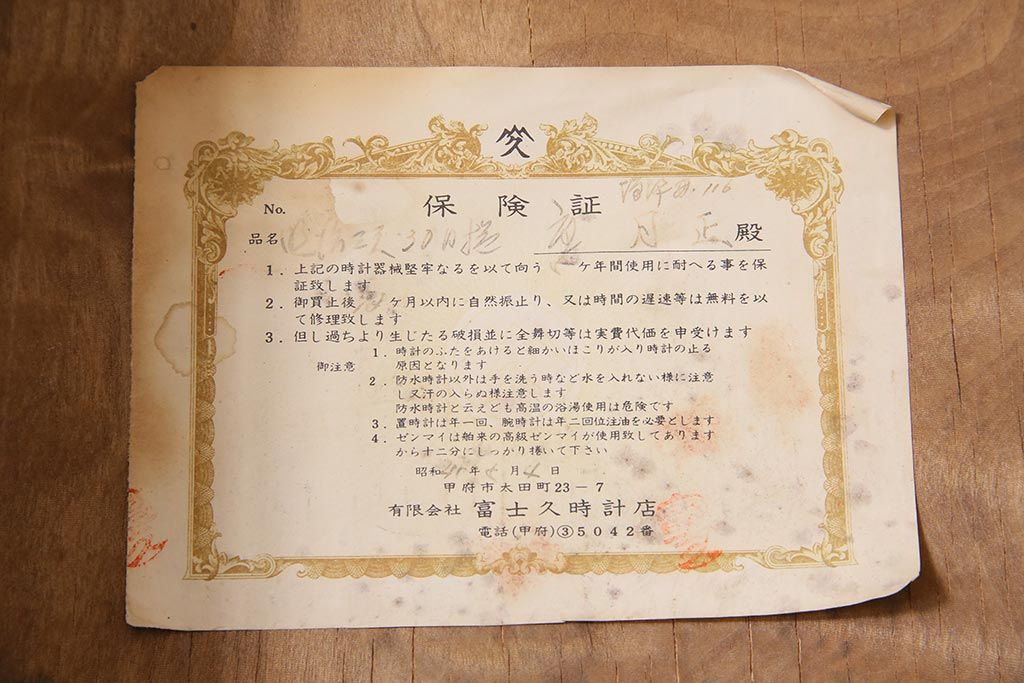 久
保険証
No.
品名 30日捲 正殿
1. 上記の時計器械堅牢なるを以て向う ケ年間使用に耐へる事を保
証致します
2. 御買止後 ケ月以内に自然振止り、又は時間の遅速等は無料を以
て修理致します
3. 但し過ちより生じたる破損並に全舞切等は実費代価を申受けます
御注意
1. 時計のふたをあけると細かいほこりが入り時計の止る
原因となります
2. 防水時計以外は手を洗う時など水を入れない様に注意
し又汗の入らぬ様注意します
防水時計と云えども高温の浴湯使用は危険です
3. 置時計は年一回、腕時計は年二回位注油を必要とします
4. ゼンマイは舶来の高級ゼンマイが使用致してあります
から十二分にしっかり捲いて下さい
昭和 年 月 4 日
甲府市太田町23-7
有限会社 富士久時計店
電話(甲府)③5042番